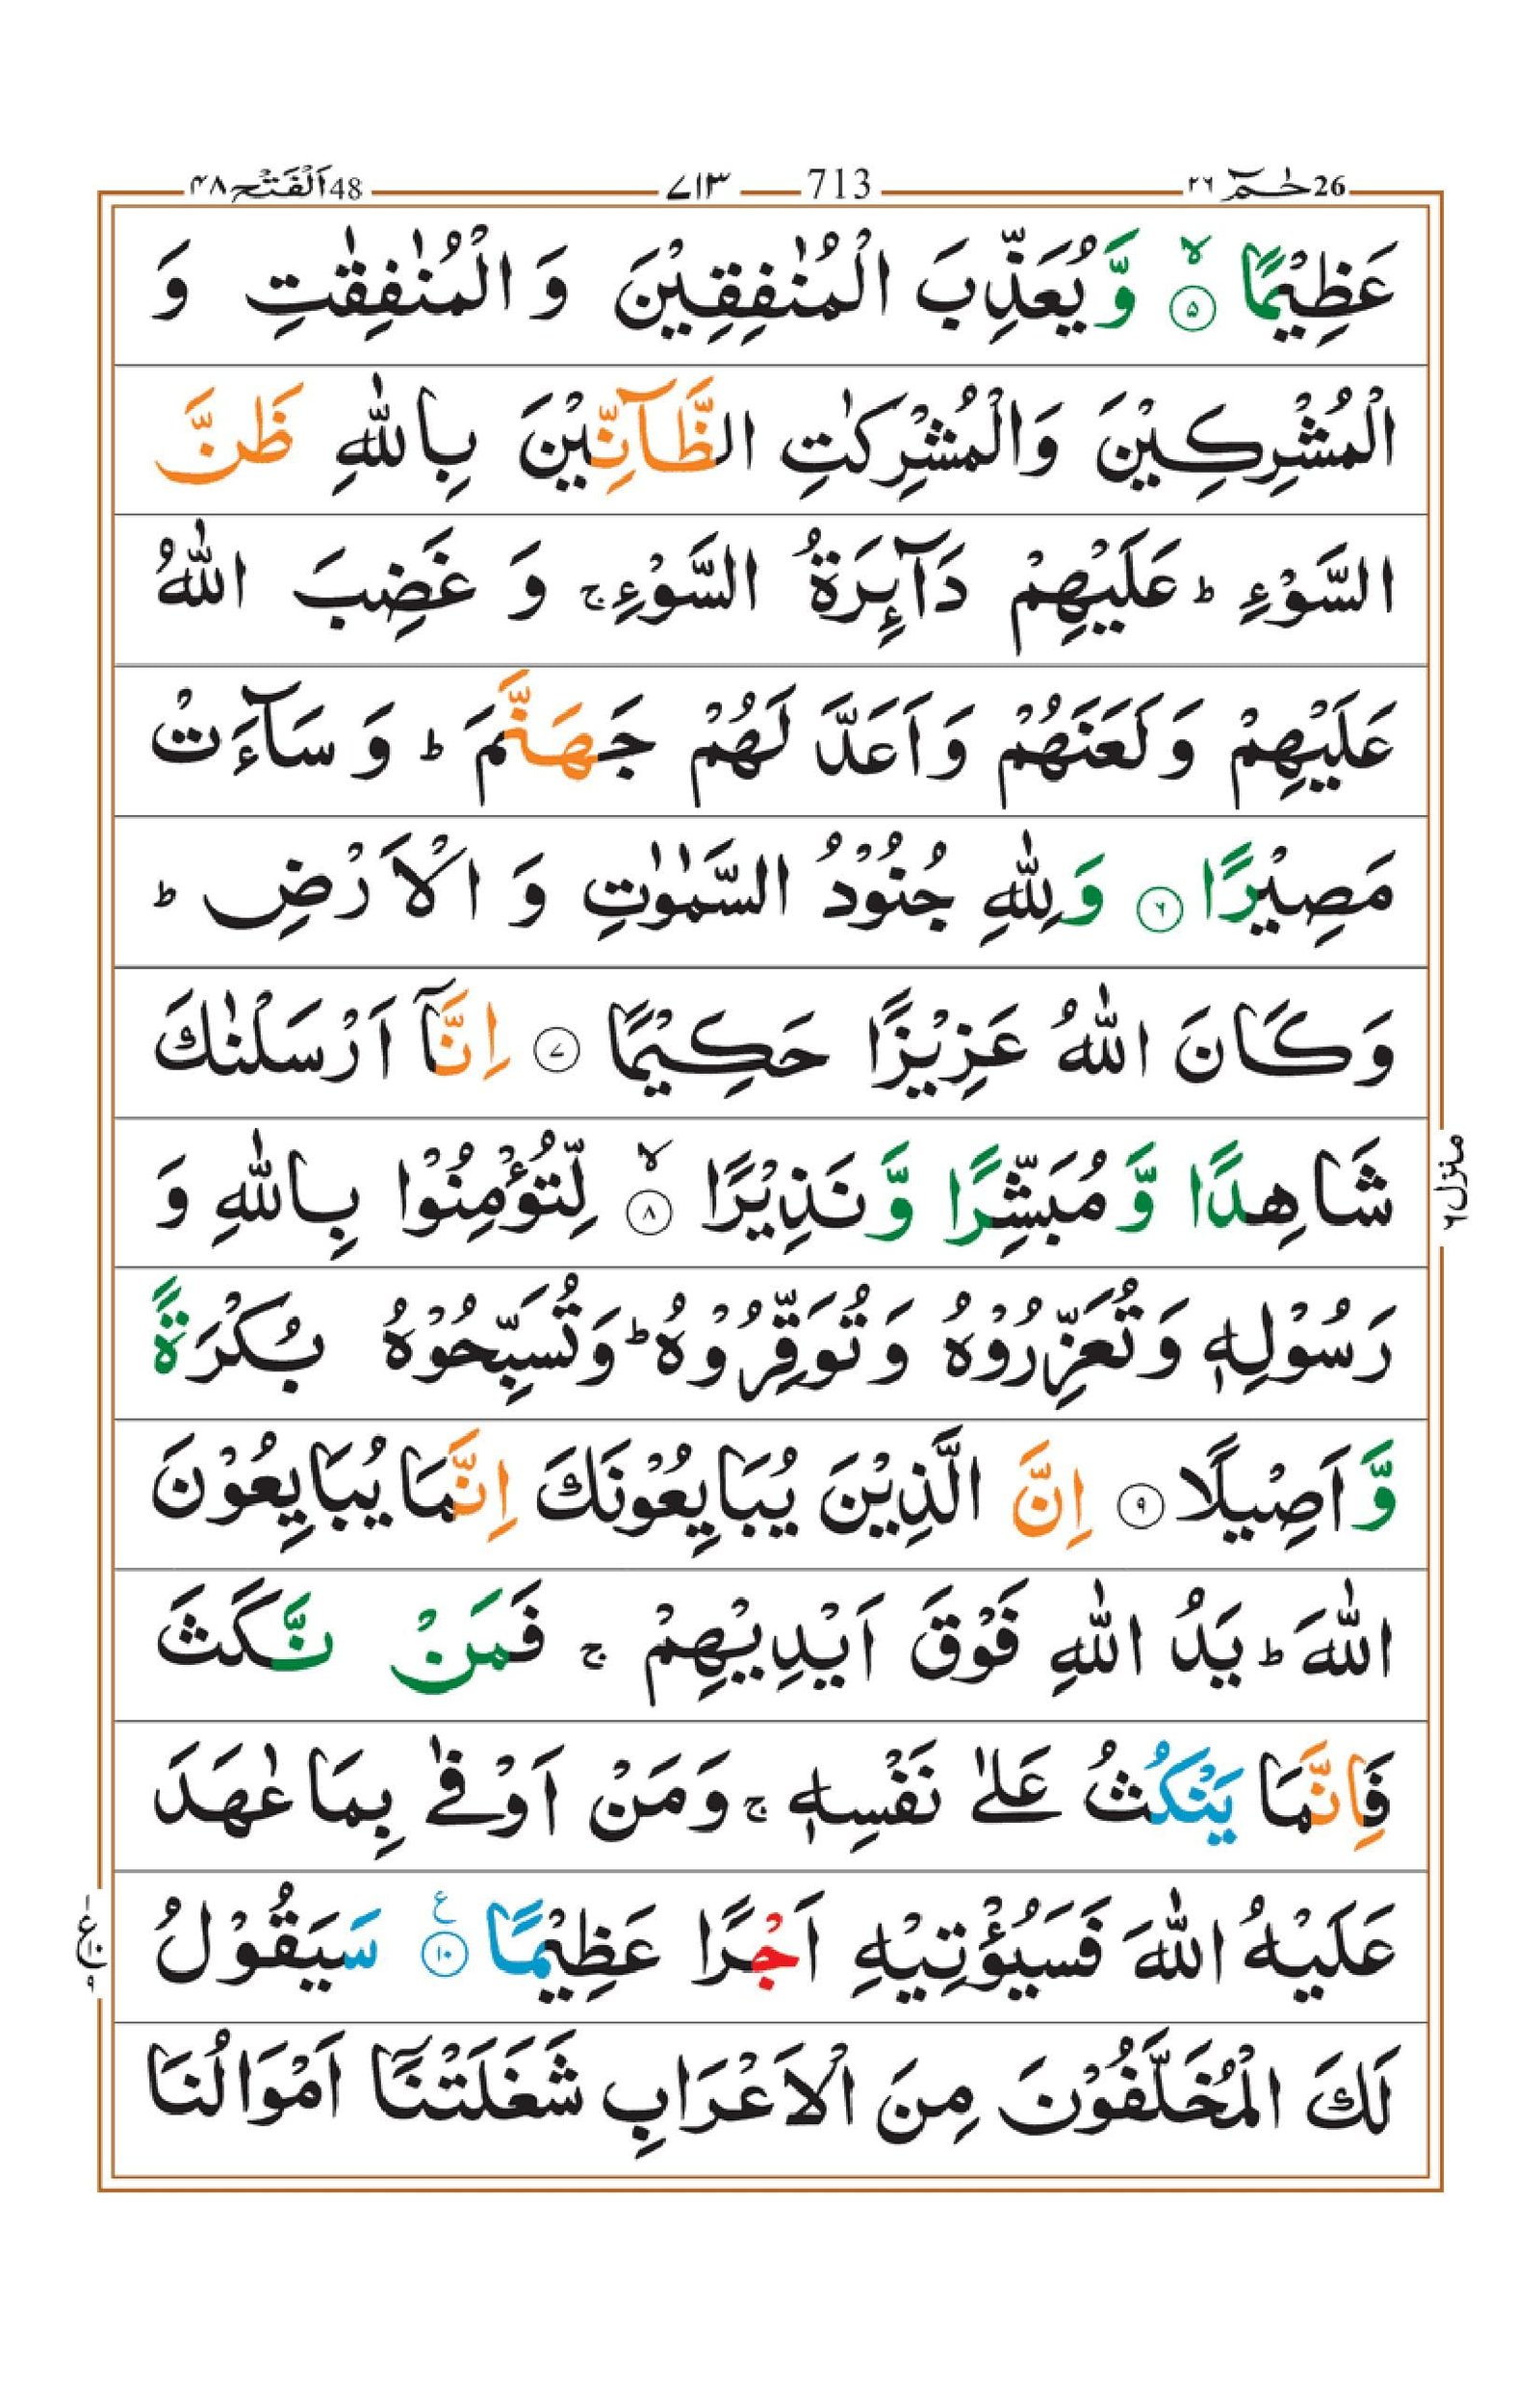 26 حٰمٓ ٢٦ 713 ٧١٣ 48 اَلْفَتْح ٤٨
عَظِيْمًا ۙ ﴿۵﴾ وَّ يُعَذِّبَ الْمُنٰفِقِيْنَ وَ الْمُنٰفِقٰتِ وَ
الْمُشْرِكِيْنَ وَالْمُشْرِكٰتِ الظَّآنِّيْنَ بِاللّٰهِ ظَنَّ
السَّوْءِ ؕ عَلَيْهِمْ دَآىِٕرَةُ السَّوْءِ ۚ وَ غَضِبَ اللّٰهُ
عَلَيْهِمْ وَ لَعَنَهُمْ وَ اَعَدَّ لَهُمْ جَهَنَّمَ ؕ وَ سَآءَتْ
مَصِيْرًا ﴿٦﴾ وَلِلّٰهِ جُنُوْدُ السَّمٰوٰتِ وَ الْاَرْضِ ؕ
وَ كَانَ اللّٰهُ عَزِيْزًا حَكِيْمًا ﴿٧﴾ اِنَّآ اَرْسَلْنٰكَ
شَاهِدًا وَّ مُبَشِّرًا وَّ نَذِيْرًا ۙ ﴿٨﴾ لِّتُؤْمِنُوْا بِاللّٰهِ وَ
رَسُوْلِهٖ وَ تُعَزِّرُوْهُ وَ تُوَقِّرُوْهُ ؕ وَ تُسَبِّحُوْهُ بُكْرَةً
وَّ اَصِيْلًا ﴿٩﴾ اِنَّ الَّذِيْنَ يُبَايِعُوْنَكَ اِنَّمَا يُبَايِعُوْنَ
اللّٰهَ ؕ يَدُ اللّٰهِ فَوْقَ اَيْدِيْهِمْ ۚ فَمَنْ نَّكَثَ
فَاِنَّمَا يَنْكُثُ عَلٰى نَفْسِهٖ ۚ وَمَنْ اَوْفٰى بِمَا عٰهَدَ
عَلَيْهُ اللّٰهَ فَسَيُؤْتِيْهِ اَجْرًا عَظِيْمًا ﴿١٠﴾ ع سَيَقُوْلُ
لَكَ الْمُخَلَّفُوْنَ مِنَ الْاَعْرَابِ شَغَلَتْنَآ اَمْوَالُنَا
منزل ٦
١ ع ١٠ ٩